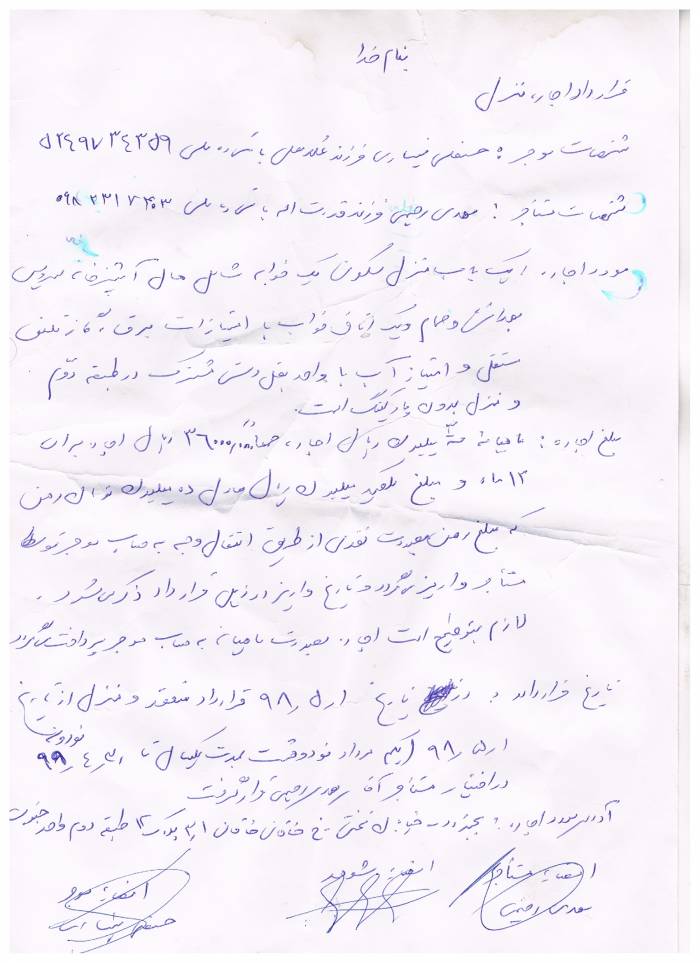 بنام خدا
قرارداد اجاره منزل
مشخصات موجر: حسنعلی فرزند غلامعلی با شماره ملی ۵۲۴۹۷۳۴۳۵۹
مشخصات مستاجر: مهدی رحیمی فرزند قدرت اله با شماره ملی
مورد اجاره: یک باب منزل مسکونی یک خوابه شامل هال آشپزخانه سرویس
بهداشتی و حمام و یک اتاق خواب با امتیازات برق، گاز تلفن
مستقل و امتیاز آب با واحد بغل دستی مشترک در طبقه دوم
و منزل بدون پارکینگ است.
مبلغ اجاره: ماهیانه سه میلیون ریال اجاره، جمعاً ۳۶۰۰۰,۰۰۰ ریال اجاره برای
۱۲ ماه و مبلغ یکصد میلیون ریال معادل ده میلیون تومان رهن
که مبلغ رهن بصورت نقدی از طریق انتقال وجه به حساب موجر توسط
مستأجر واریز میگردد و تاریخ واریز در ذیل قرارداد ذکر میشود.
لازم بتوضیح است اجاره بصورت ماهیانه به حساب موجر پرداخت میگردد
تاریخ قرارداد: در تاریخ ۹۸٫۵٫۱ قرارداد منعقد و منزل از تاریخ
۹۸٫۵٫۱ یکم مرداد نود و هشت بمدت یکسال تا ۹۹٫۴٫۳۱ نود و نه
در اختیار مستاجر آقای مهدی رحیمی قرار گرفت
آدرس مورد اجاره: خاقانی خاقانی ۳٫۱ پلاک طبقه دوم واحد جنوبی
امضاء مستأجر
مهدی رحیمی
امضاء شهود
امضاء موجر
حسنعلی